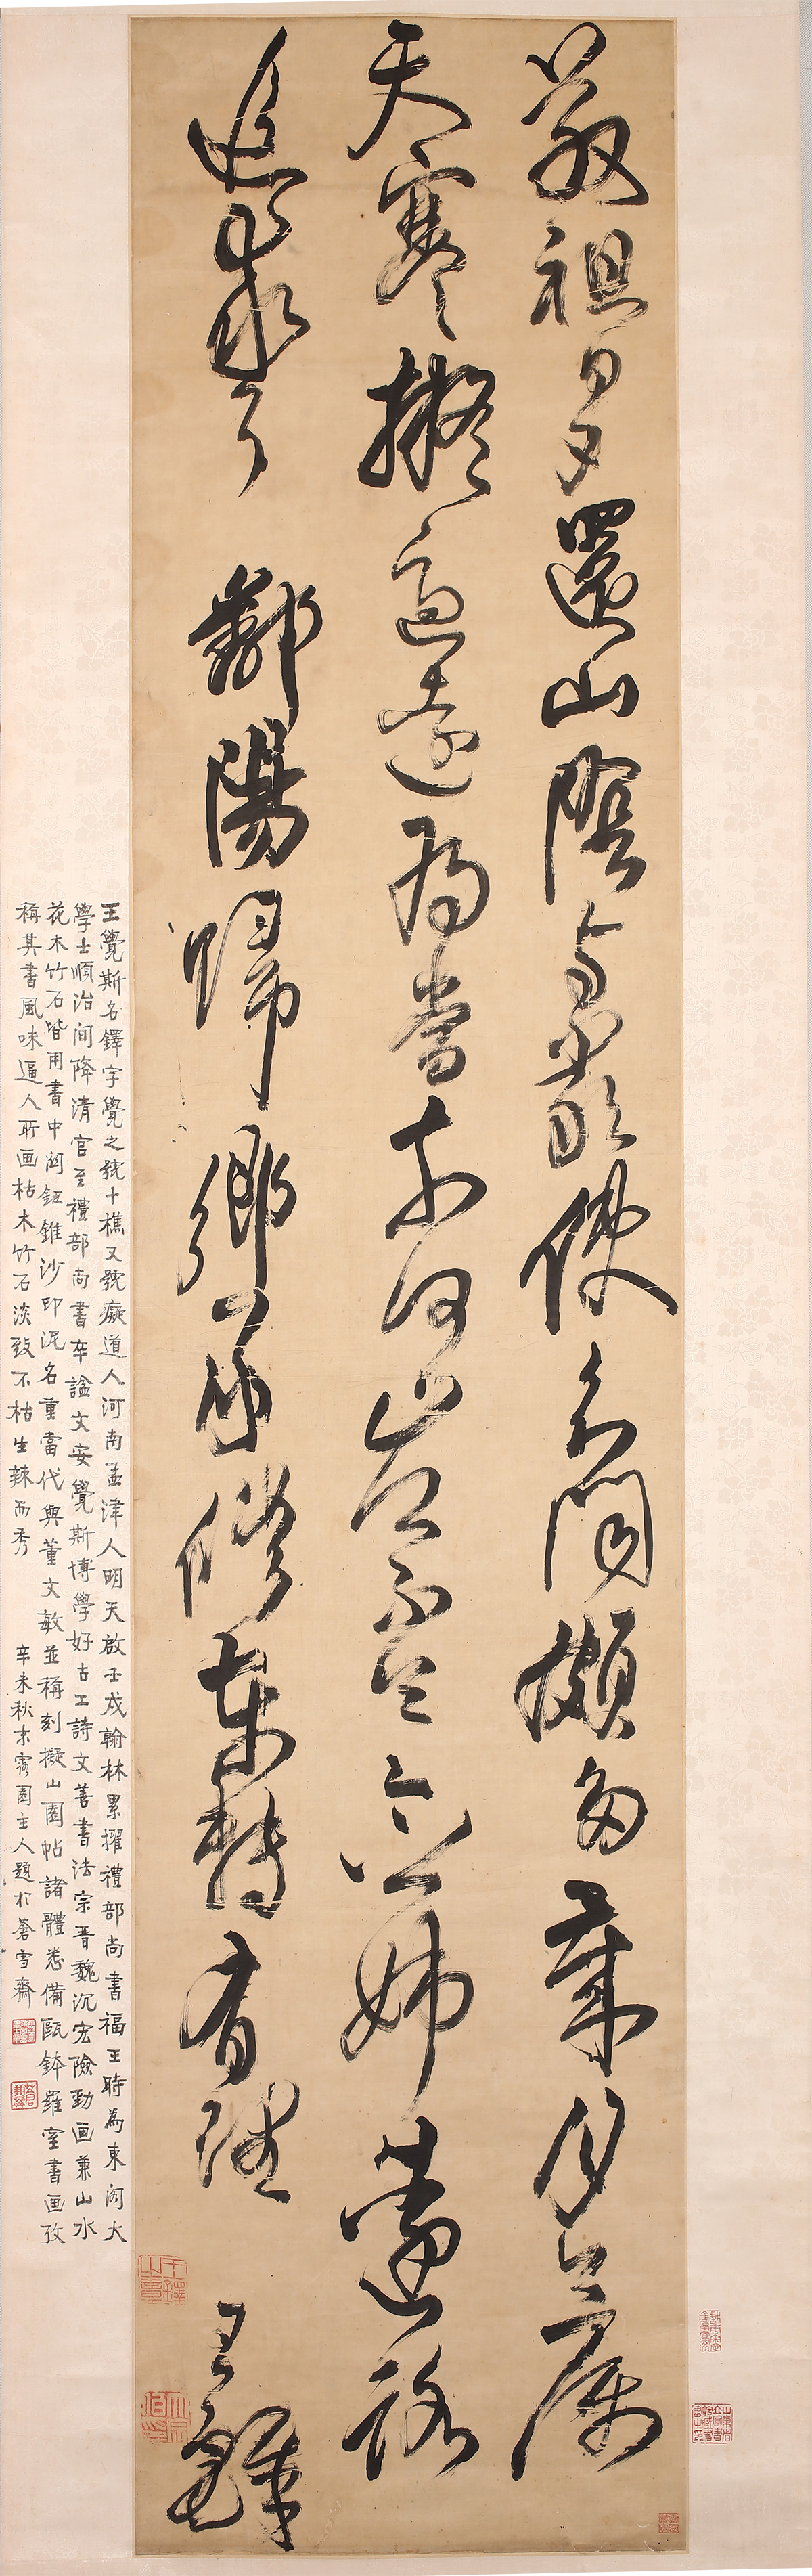 敬祖日夕還山陰與嚴使君聞頗多歲月今屬
天寒擬適遠為當奈何豈不姊遠路
追求耳 鄱陽歸鄉承修東轉有理 王鐸
王覺斯名鐸字覺之號十樵又號癡道人河南孟津人明天啟壬戌翰林累擢禮部尚書福王時為東閣大
學士順治间降清官至禮部尚書卒謚文安覺斯博學好古工詩文善書法宗晋魏沉宏險勁画兼山水
花木竹石皆用書中鈕錐沙印泥名重當代與董文敏並稱刻擬山園帖諸體悉備甌鉢羅室書画攷
稱其書風味逼人所画枯木竹石淡致不枯生辣而秀 辛未秋末園主人題於蒼雪齋